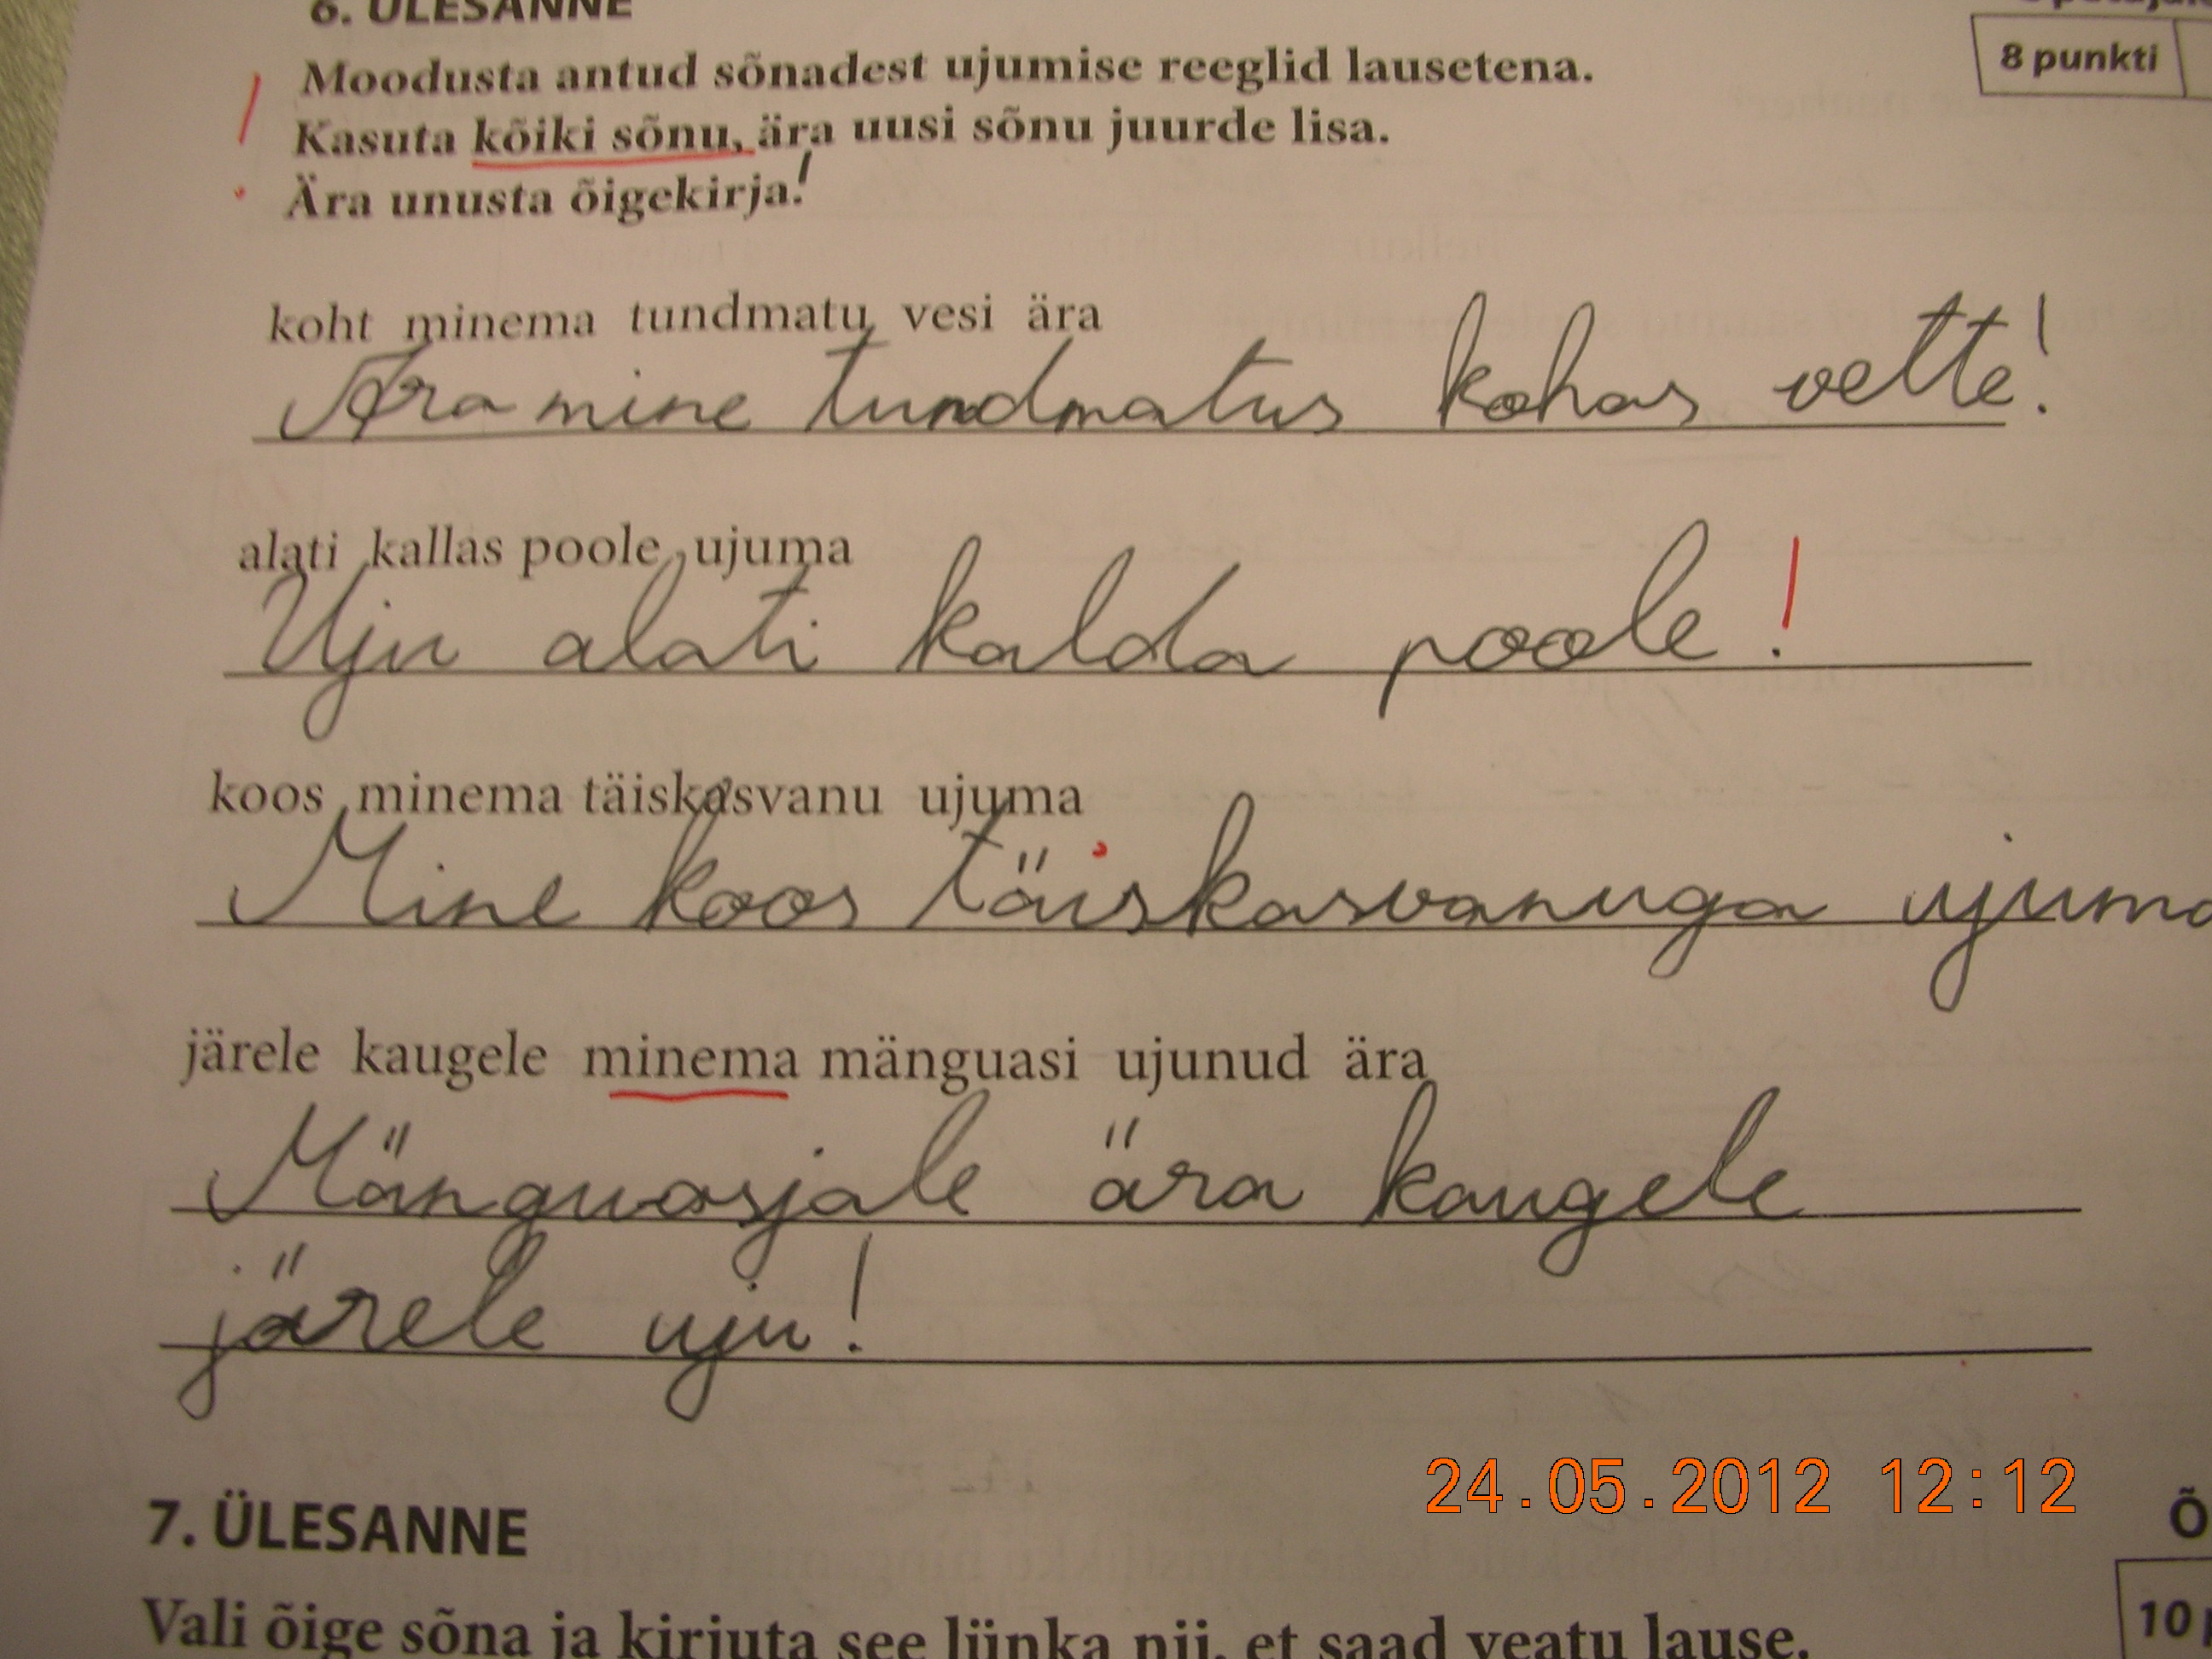 6. ÜLESANNE
8 punkti
Moodusta antud sõnadest ujumise reeglid lausetena.
Kasuta kõiki sõnu, ära uusi sõnu juurde lisa.
Ära unusta õigekirja!
koht minema tundmatu vesi ära
Ära mine tundmatus kohas vette!
alati kallas poole ujuma
Uju alati kalda poole!
koos minema täiskasvanu ujuma
Mine koos täiskasvanuga ujuma
järele kaugele minema mänguasi ujunud ära
Mänguasjale ära kaugele
järele uju!
24.05.2012 12:12
7. ÜLESANNE
10
Vali õige sõna ja kirjuta see lünka nii, et saad veatu lause.